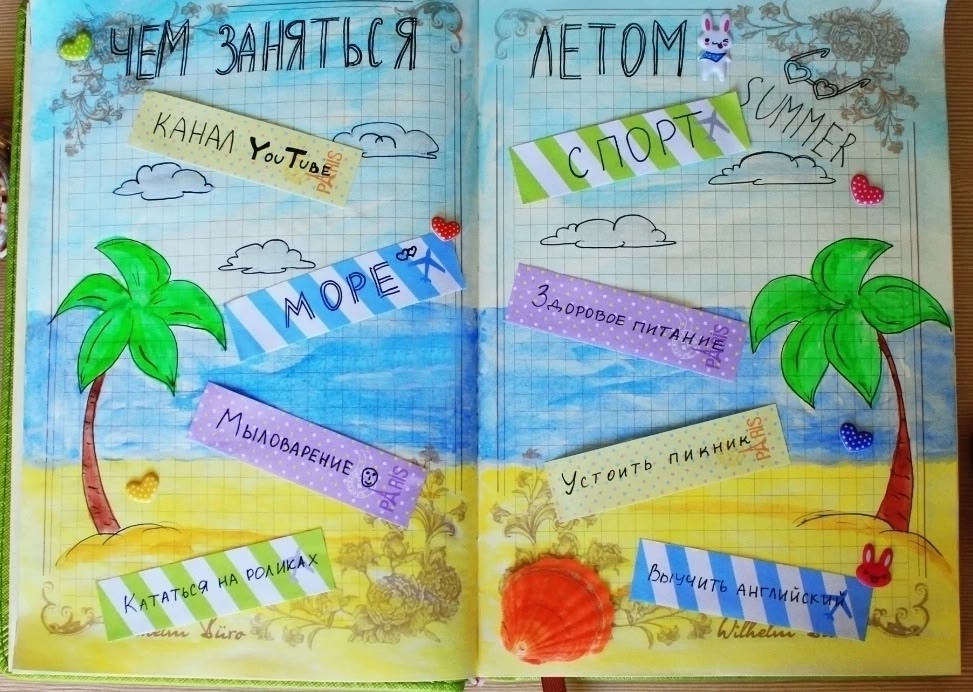 ЧЕМ ЗАНЯТЬСЯ
ЛЕТОМ
SUMMER
КАНАЛ YOUTUBE
PARIS
МОРЕ
Мыловарение
PARIS
Кататься на роликах
СПОРТ
Здоровое питание
PARIS
Устоить пикник
PARIS
Выучить английский
Wilhelm Büro
Wilhelm